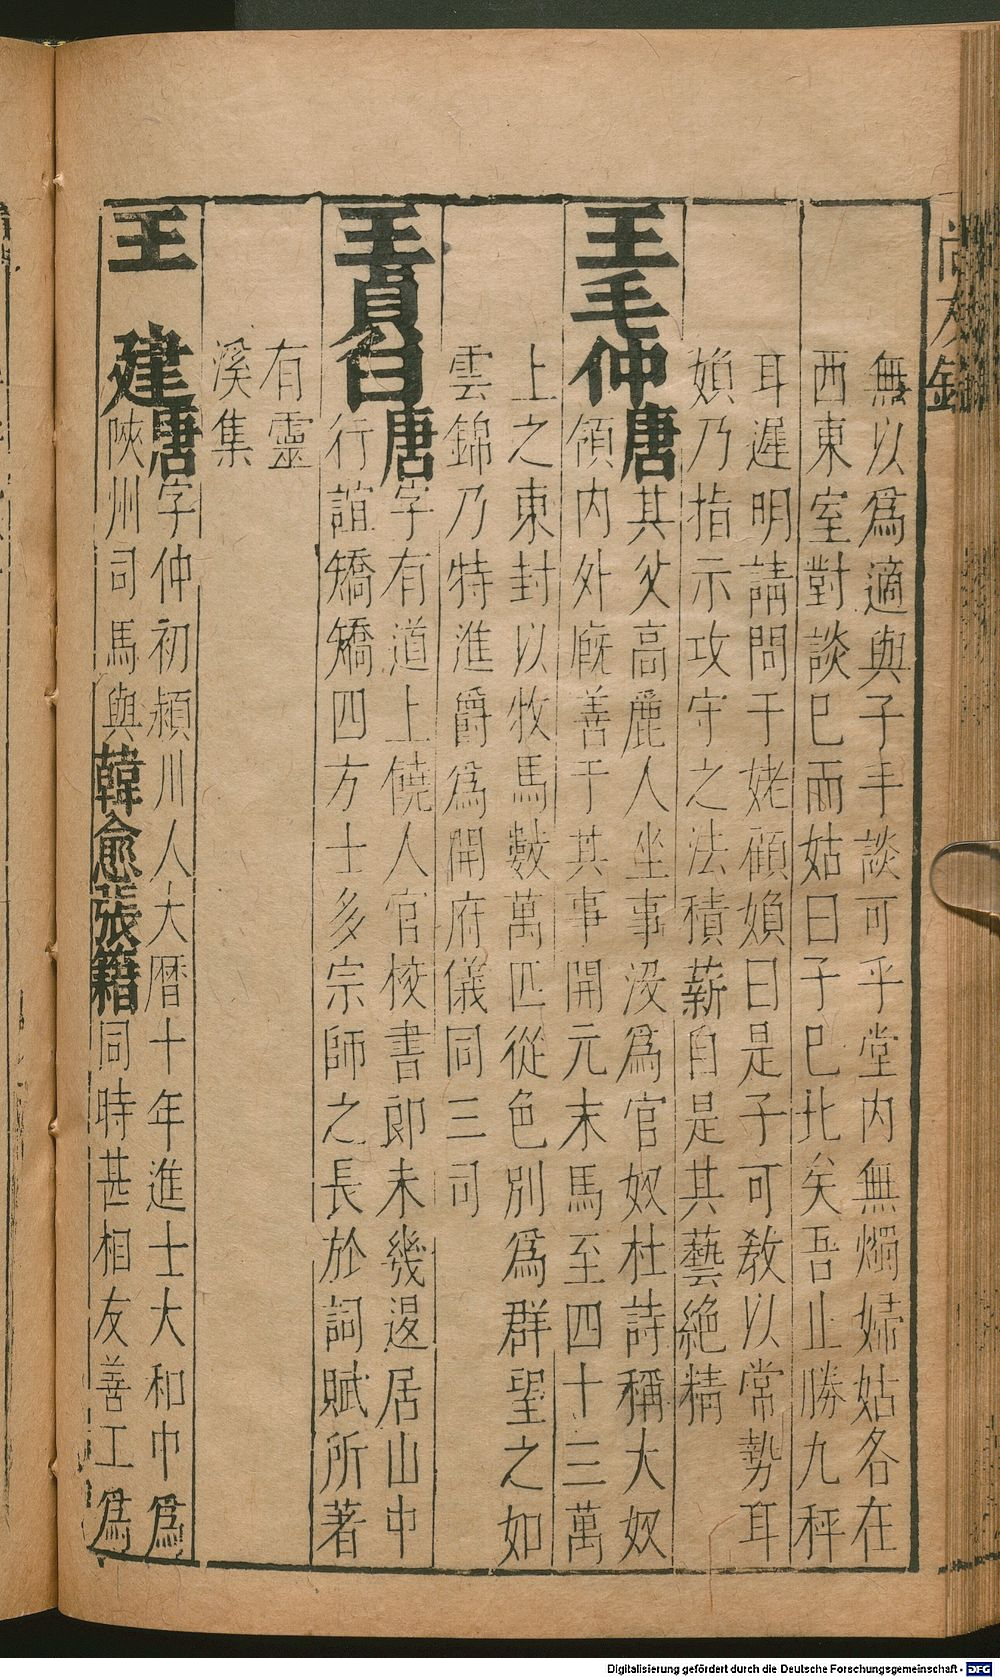 無以爲適與子手談可乎堂内無燭婦姑各在
西東室對談巳而姑曰子巳北矣吾止勝九秤
耳遲明請問于姥顧媍曰是子可教以常勢耳
媍乃指示攻守之法積薪自是其藝絶精
王毛仲唐其父高麗人坐事没爲官奴杜詩稱大奴
領内外廐善于其事開元末馬至四十三萬
上之東封以牧馬數萬匹從色别爲群望之如
雲錦乃特進爵爲開府儀同三司
王貞白唐字有道上饒人官校書郎未幾退居山中
行誼矯矯四方士多宗師之長於詞賦所著
有靈
溪集
王建唐字仲初潁川人大曆十年進士大和中爲
陜州司馬與韓愈張籍同時甚相友善工爲
Digitalisierung gefördert durch die Deutsche Forschungsgemeinschaft - DFG